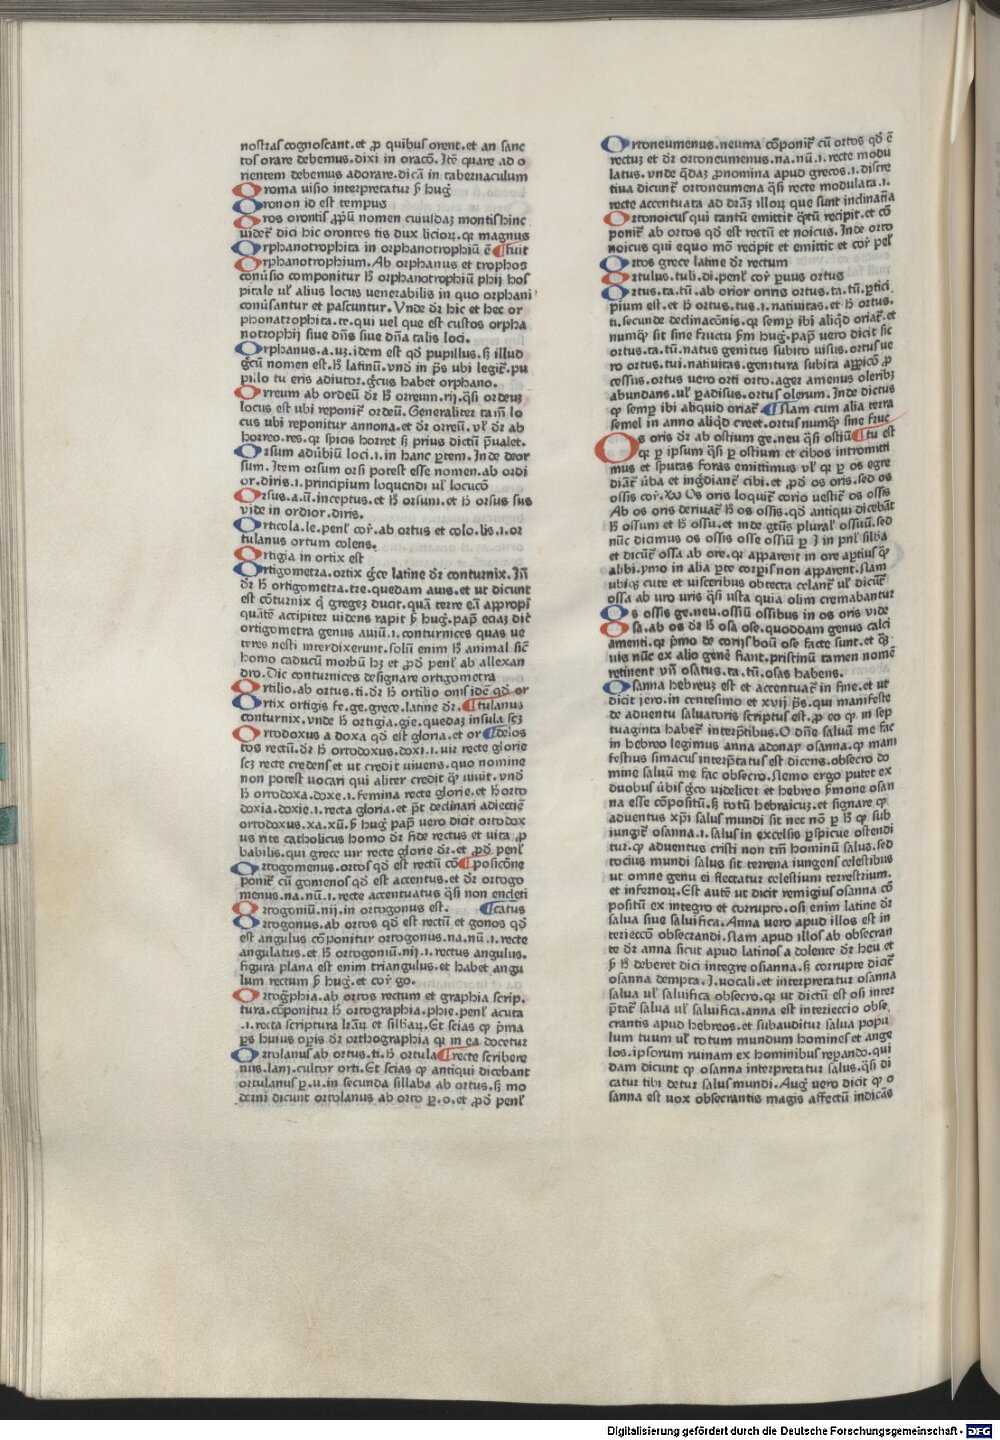 nostras cognoscant.et ꝓ quibus orent.et an sanc
tos orare debemus.dixi in oracō. Itē quare ad o
rientem debemus adorare.dicā in tabernaculum
Oroma visio interpretatur ẜm hug̃
Oronon id est tempus
Oros orontis ꝓpriū nomen cuiusdaꝫ montis hinc
uider̃ dici hic orontes tis dux licioꝝ.qꝛ magnus
Orphanotrophita in orphanotrophiū ē ¶fuit
Orphanotrophium. Ab orphanus et trophos
conu̇sio componitur ħ orphanotrophiū phij hos
pitale ul̓ alius locus uenerabilis in quo orphani
conūsantur et pascuntur. Vnde dr̄ hic et hec or
phonatrophita.te.qui uel que est custos orpha
notrophij siue dn̄s siue dn̄a talis loci.
Orphanus.a.uꝫ.idem est qđ pupillus.ẜ illud
g̃cū nomen est.ħ latinū.vnđ in p̄s ubi legit̃.pu
pillo tu eris adiutor.g̃cus habet orphano.
Orreum ab ordeū dr̄ ħ orreum.rij.q̄si ordeuꝫ
locus est ubi reponit̃ ordeū. Generaliter tam̄ lo
cus ubi reponitur annona.et dr̄ orreū. vl̓ dr̄ ab
horreo.res.qꝛ spicis horret ẜ prius dictū p̄ualet.
Orsum adūbiū loci.ı.in hanc ꝑtem. Inde deor
sum. Item orsum orsi potest esse nomen.ab ordi
or.diris.ı.principium loquendi ul̓ locucō
Orsus.a.ū.inceptus.et ħ orsum.et ħ orsus sus
vide in ordior.diris.
Orticola.le.penl̓ cor̃.ab ortus et colo.lis.ı.or
tulanus ortum colens.
Ortigia in ortix est
Ortigometra.ortix g̃ce latine dr̄ conturnix. Iñ
dr̄ ħ ortigometra.tre.quedam auis.et ut dicunt
est cōturnix q̇ gregeꝫ ducit.quā terre eā appropi
quātē accipiter uidens rapit ẜ hug̃.pap̃ eciaꝫ dic̃
ortigometra genus auiū.ı.conturnices quas ue
teres uesti interdixerunt.solū enim ħ animal sic̃
homo caducū morbū hꝫ et ꝓđ penl̓ ab allexan
dro. Dic conturnices designare ortigometra
Ortilio.ab ortus.ti.dr̄ ħ ortilio onis idē qđ or
Ortix ortigis fe.ge.grece.latine dr̄.¶tulanus
conturnix.vnde ħ ortigia.gie.quedaꝫ insula scꝫ
Ortodoxus a doxa qđ est gloria.et or¶delos
tos rectū.dr̄ ħ ortodoxus.doxi.ı.uir recte glorie
scꝫ recte credens et ut credit uiuens.quo nomine
non potest uocari qui aliter credit qͣ̄ uiuit.vnđ
ħ ortodoxa.doxe.ı.femina recte glorie.et ħ orto
doxia.doxie.ı.recta gloria.et p̄t declinari adiectiē
ortodoxus.xa.xū.ẜ hug̃ pap̃ uero dicit ortodox
us rite catholicus homo dr̄ fide rectus et uita ꝓ
babilis.qui grece uir recte glorie dr̄.et ꝓđ penl̓
Ortogomenus.ortos qđ est rectū cō¶posicōne
ponit̃ cū gomenos qđ est accentus.et dr̄ ortogo
menus.na.nū.ı.recte accentuatus q̄si non encleti
Ortogoniū.nij.in ortogonus est. ¶catus
Ortogonus.ab ortos qđ est rectū et gonos qđ
est angulus cōponitur ortogonus.na.nū.ı.recte
angulatus.et ħ ortogoniū.nij.ı.rectus angulus.
figura plana est enim triangulus.et habet angu
lum rectum ẜ hug̃.et cor̃ go.
Ortog̃phia.ab ortos rectum et graphia scrip.
tura.cōponitur ħ ortographia.phie.penl̓ acuta
.ı.recta scriptura lr̄aꝝ et sillbaꝝ. Et scias qͦ p̄ma
ꝑs huius opis dr̄ orthographia qꝛ in ea docetur
Ortolanus ab ortus.ti.ħ ortula¶recte scribere
nus.lani.cultor orti. Et scias qͦ antiqui dicebant
ortulanus ꝑ.u.in secunda sillaba ab ortus.ẜ mo
derni dicunt ortolanus ab orto ꝑ.o.et ꝓđ penl̓
Ortoneumenus.neuma cōponit̃ cū ortos qđ ē
rectuꝫ et dr̄ ortoneumenus.na.nū.ı.recte modu
latus.vnde q̄daꝫ ꝓnomina apud grecos.ı.discre
tiua dicunt̃ ortoneumena q̄si recte modulata.ı.
recte accentuata ad dr̄aꝫ illoꝝ que sunt inclinatiā
Ortonoicus qui tantū emittit q̄tū recipit.et cō
ponit̃ ab ortos qđ est rectū et noicus. Inde orto
noicus qui equo mō recipit et emittit et cor̃ pel̓
Ortos grece latine dr̄ rectum
Ortulus.tuli.di.penl̓ cor̃ ꝑuus ortus
Ortus.ta.tū.ab orior oriris ortus.ta.tū.ꝑtici
pium est.et ħ ortus.tus.ı.natiuitas.et ħ ortus.
ti.secunde declinacōnis.qꝛ semꝑ ibi aliqđ oriat̃.et
numqͣ̄ sit sine fructu ẜm hug̃.pap̃ uero dicit sic
ortus.ta.tū.natus genitus subito uisus.ortus ue
ro ortus.tui.natiuitas.genitura subita appicō ꝓ
cessus.ortus uero orti orto.ager amenus oleribꝫ
abundans.ul̓ ꝑadisus.ortus olerum. Inde dictus
qͦ semꝑ ibi aliquid oriat̃.¶Nam cum alia terra
semel in anno aliqđ creet.ortus numqͣ̄ sine fruc
Os oris dr̄ ab ostium ge.neu q̄si ostiū¶tu est
qꝛ ꝑ ipsum q̄si ꝑ ostium et cibos intromitti
mus et sputas foras emittimus vl̓ qꝛ ꝑ os egre
diāt̃ ūba et ing̃diant̃ cibi.et ꝓđ os oris.sed os
ossis cor̃. Xƿ Os oris loquit̃ corio uestit̃ os ossis
Ab os oris deriuat̃ ħ os ossis.qđ antiqui dicebāt
ħ ossum et ħ ossu.et inde gt̄ius plural̓ ossuū.sed
nūc dicimus os ossis osse ossiū ꝑ I in pnl̓ sillba
et dicūt̃ ossa ab ore.qꝛ apparent in ore aptius qͣ̄
alibi.ymo in alia ꝑte corꝑis non apparent. Nam
ubiqꝫ cute et uisceribus obtecta celant̃ ul̓ dicūt̃
ossa ab uro uris q̄si usta quia olim cremabantur
Os ossis ge.neu.ossiū ossibus in os oris vide
Osa.ab os dr̄ ħ osa ose.quoddam genus calci
amenti.qꝛ p̄mo de corijs boū ose facte sunt.et qͣ̄
uis nūc ex alio gene̓ fiant.pristinū tamen nomē
retinent vn̄ osatus.ta.tū.osas habens.
Osanna hebreuꝫ est et accentuat̃ in fine.et ut
dicit jero.in centesimo et xvij p̄s.qui manifeste
de aduentu saluatoris scriptus est.ꝓ eo qͦ in sep
tuaginta habet̃ interp̄tibus. O dn̄e saluū me fac
in hebreo legimus anna adonay osanna.qͦ mani
festius simacus interp̄tatus est dicens.obsecro do
mine saluū me fac obsecro. Nemo ergo putet ex
duobus ūbis g̃co videlicet et hebreo ẜmone osan
na esse cōpositū.ẜ totū hebraicuꝫ.et signare qͦ
aduentus xp̄i salus mundi sit nec nō ꝑ ħ qͦ sub
iungit̃ osanna.ı.salus in excelsis ꝑspicue ostendi
tur.qͦ aduentus cristi non tm̄ hominū salus.sed
tocius mundi salus sit terrena iungens celestibus
ut omne genu ei flectatur celestium terrestrium.
et infernoꝝ. Est autē ut dicit remigius osanna cō
positū ex integro et corrupto.osi enim latine dr̄
salua siue saluifica. Anna vero apud illos est in
teriectō obsecrandi. Nam apud illos ab obsecran
te dr̄ anna sicut apud latinos a dolente dr̄ heu et
ẜ ħ deberet dici integre osianna.ẜ corrupte dicit̃
osanna dempta. I.uocali.et interpretatur osanna
salua ul̓ saluifica obsecro.qꝛ ut dictū est osi inter
p̄tat̃ salua ul̓ saluifica.anna est interieccio obse
crantis apud hebreos.et subauditur salua popu
lum tuum ul̓ totum mundum homines et ange
los.ipsorum ruinam ex hominibus repando.qui
dam dicunt qͦ osanna interpretatur salus.q̄si di
catur tibi detur salus mundi. Aug̃ uero dicit qͦ o
sanna est uox obsecrantis magis affectū indicās
Digitalisierung gefördert durch die Deutsche Forschungsgemeinschaft - DFG